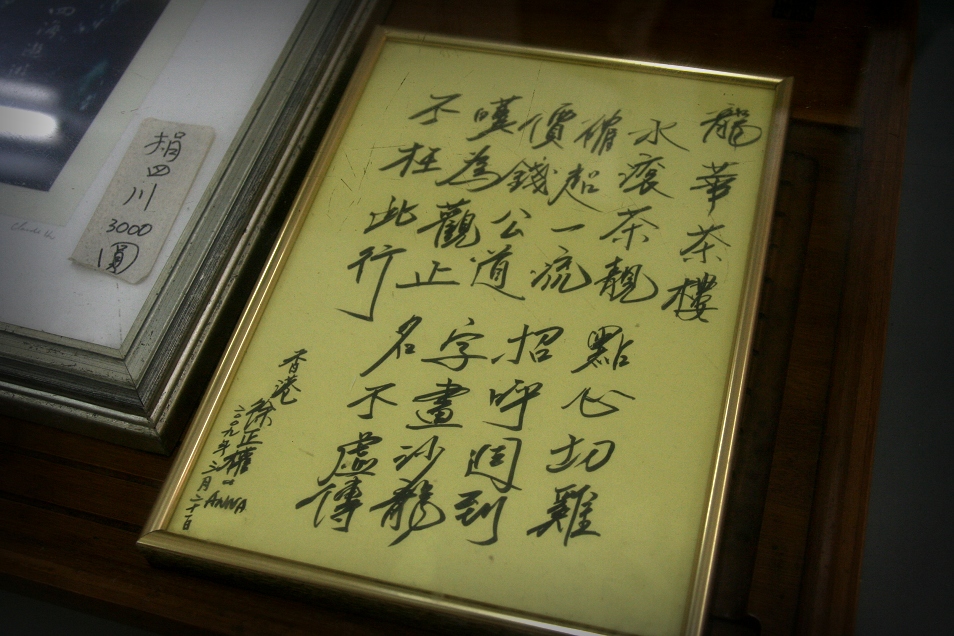 龍華茶樓
水滾茶靚 點心切雞
超一流
價錢公道 招呼週到
嘆為觀止 字畫沙龍
不枉此行 名不虛傳
香港
徐正權
ANNA
二〇〇九年三月二十一日
捐四川
3000
圓